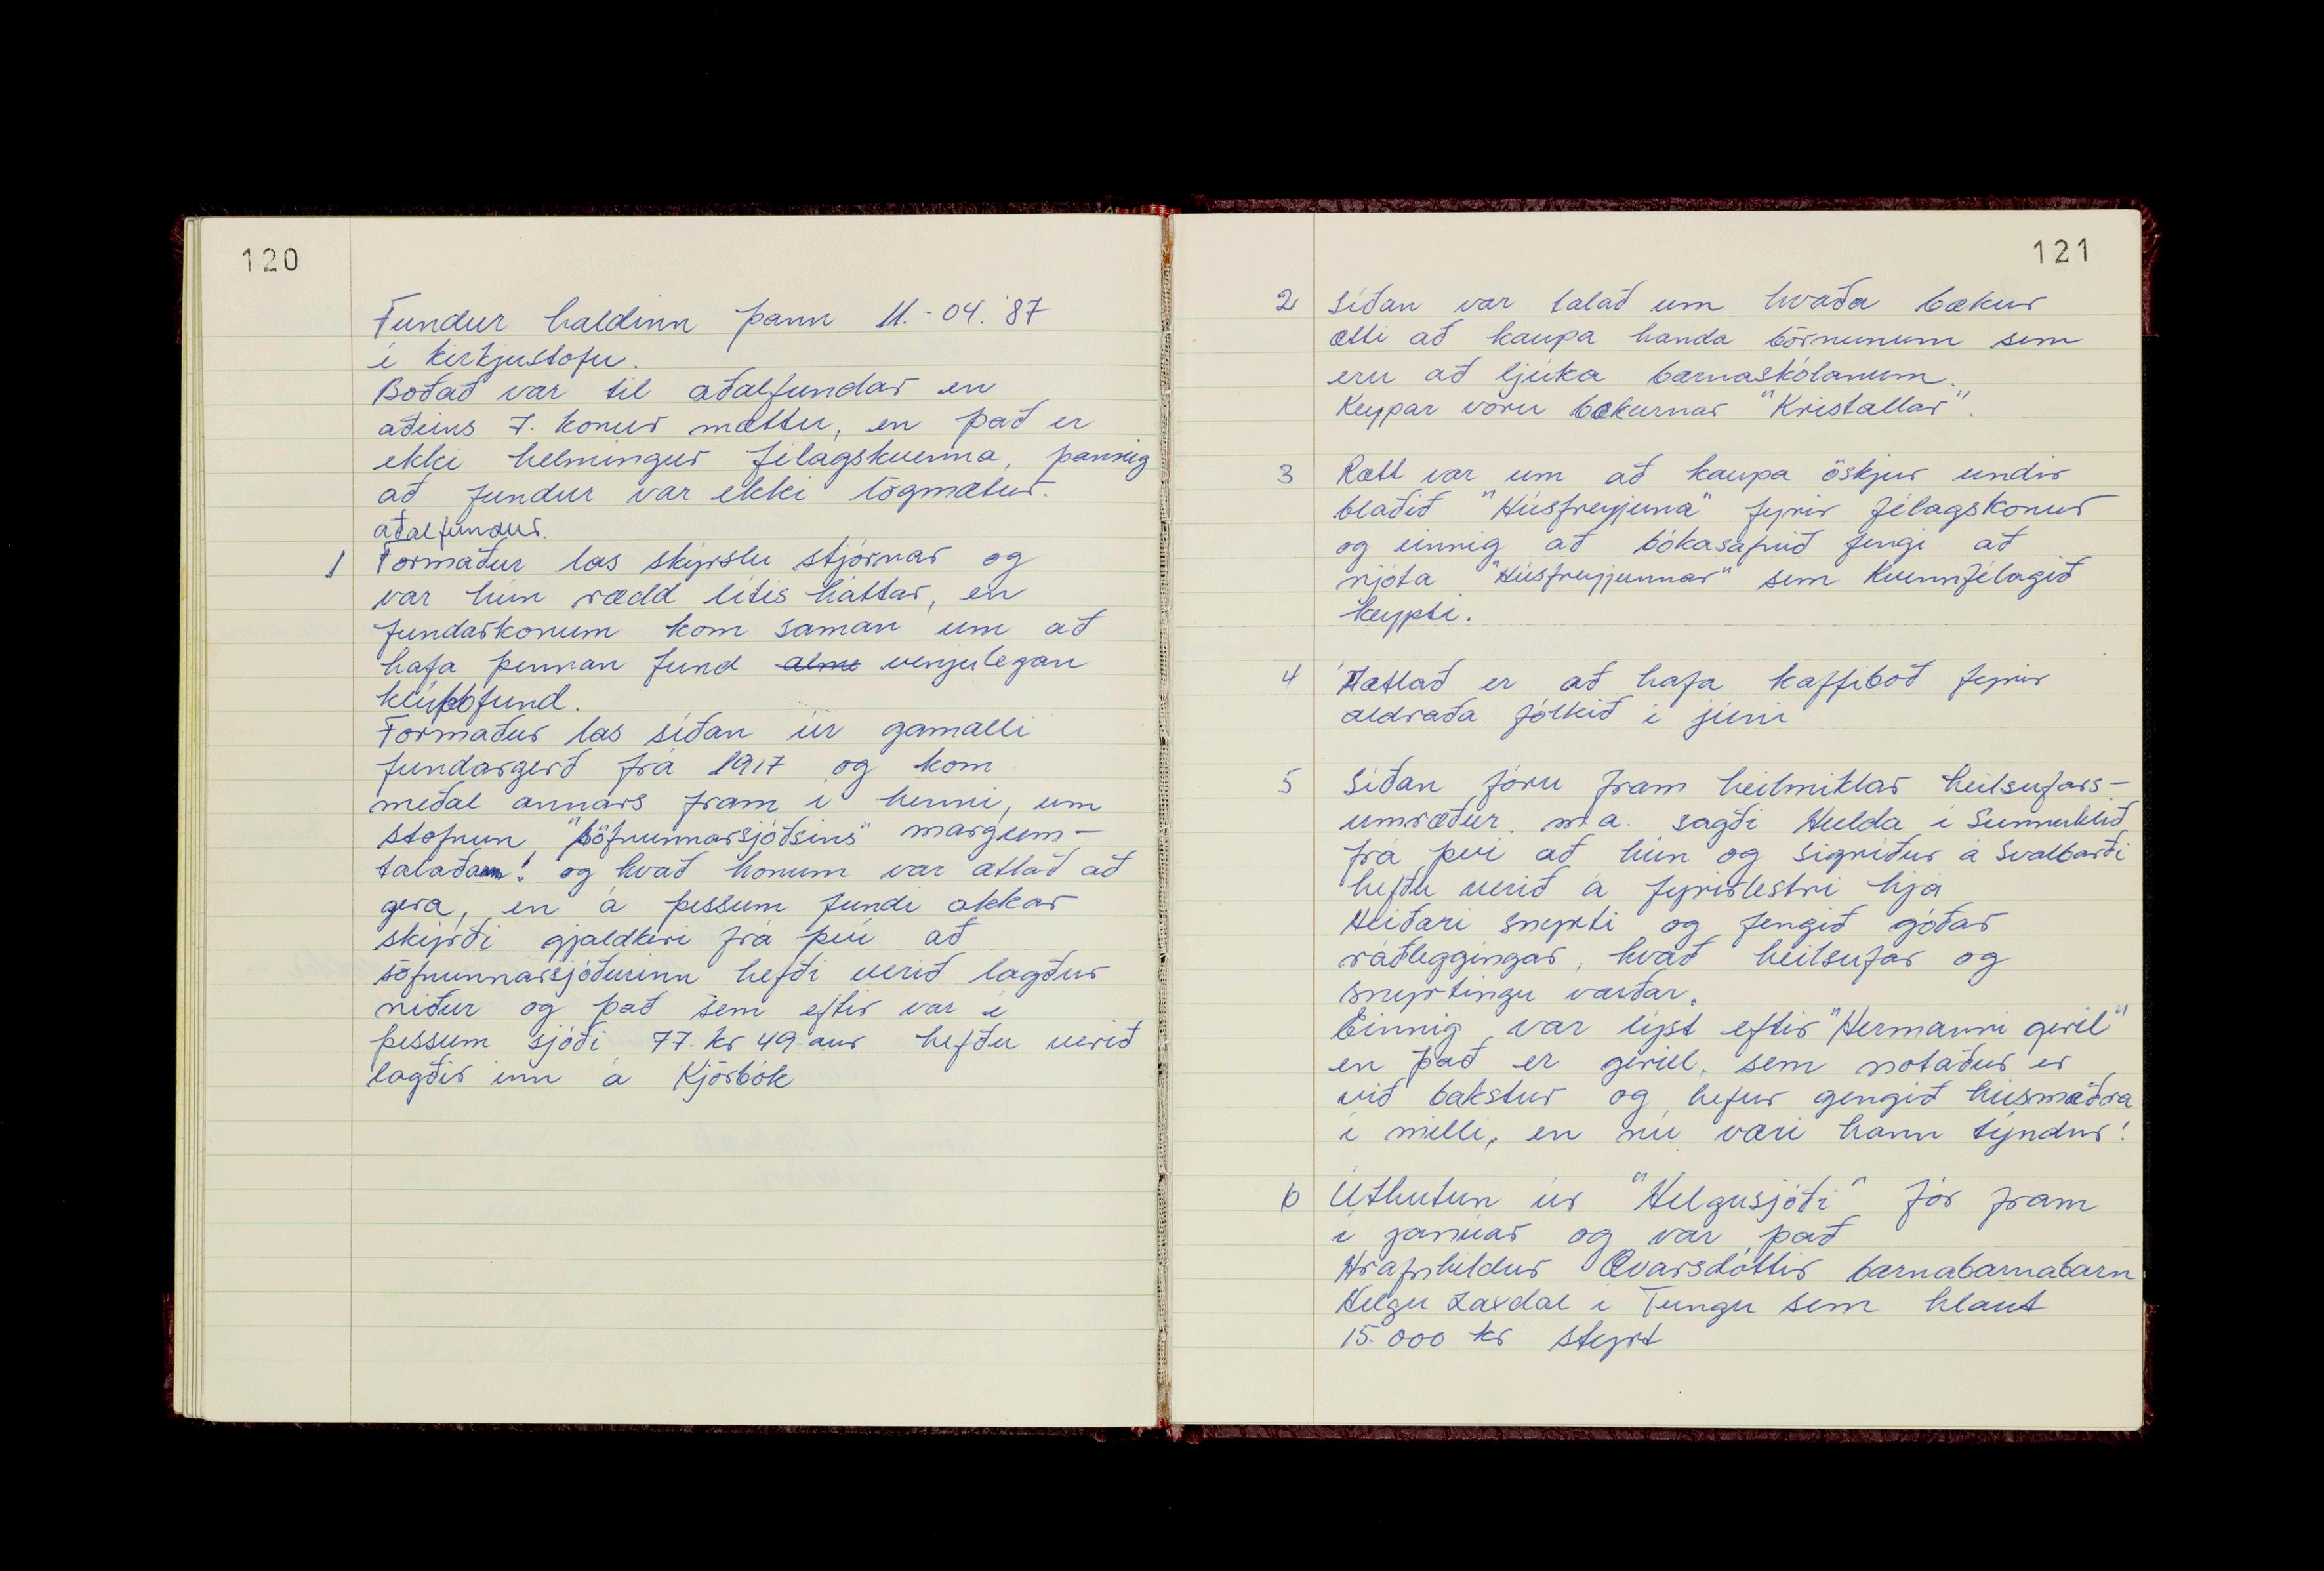 120
Fundur haldinn þann 11.-04.'87
í kirkjustofu.
Boðað var til aðalfundar en
aðeins 7. konur mættu, en það er
ekki helmingur félagskvenna, þannig
að fundur var ekki lögmætur.
aðalfundur.
1 Formaður las skýrslu stjórnar og
var hún rædd lítis háttar, en
fundarkonum kom saman um að
hafa þennan fund venjulegan
klúbbfund.
Formaður las síðan úr gamalli
fundargerð frá 1917 og kom
meðal annars fram í henni, um
stofnun "Söfnunnarsjóðsins" margum-
talaða! og hvað honum var ætlað að
gera, en á þessum fundi okkar
skýrði gjaldkeri frá því að
söfnunnarsjóðurinn hefði verið lagður
niður og það sem eftir var í
þessum sjóði 77. kr 49. aur hefðu verið
lagðir inn á Kjörbók
121
2 Síðan var talað um hvaða bækur
ætti að kaupa handa börnunum sem
eru að ljúka barnaskólanum.
Keyppar voru bækurnar "Kristallar".
3 Rætt var um að kaupa öskjur undir
blaðið "Húsfreyjuna" fyrir félagskonur
og einnig að bókasafnið fengi að
njóta "Húsfreyjunnar" sem Kvennfélagið
keypti.
4 Áætlað er að hafa kaffiboð fyrir
aldraða fólkið í júní
5 Síðan fóru fram heilmiklar heilsufars-
umræður. m.a. sagði Hulda í Sunnuhlíð
frá því að hún og Sigríður á Svalbarði
hefðu verið á fyrirlestri hjá
Heiðari snyrti og fengið góðar
ráðleggingar, hvað heilsufar og
snyrtingu varðar.
Einnig var lýst eftir "Hermanni geril"
en það er gerill, sem notaður er
við bakstur og hefur gengið húsmæðra
í milli, en nú væri hann týndur!
6 Úthutun úr "Helgusjóði" fór fram
í janúar og var það
Hrafnhildur Ævarsdóttir barnabarnabarn
Helgu Laxdal í Tungu sem hlaut
15.000 kr styrk